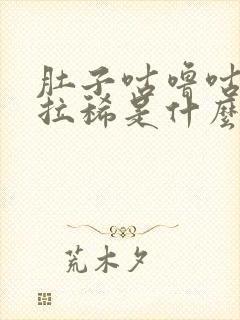 肚子咕噜咕
拉稀是什麽
荒木夕